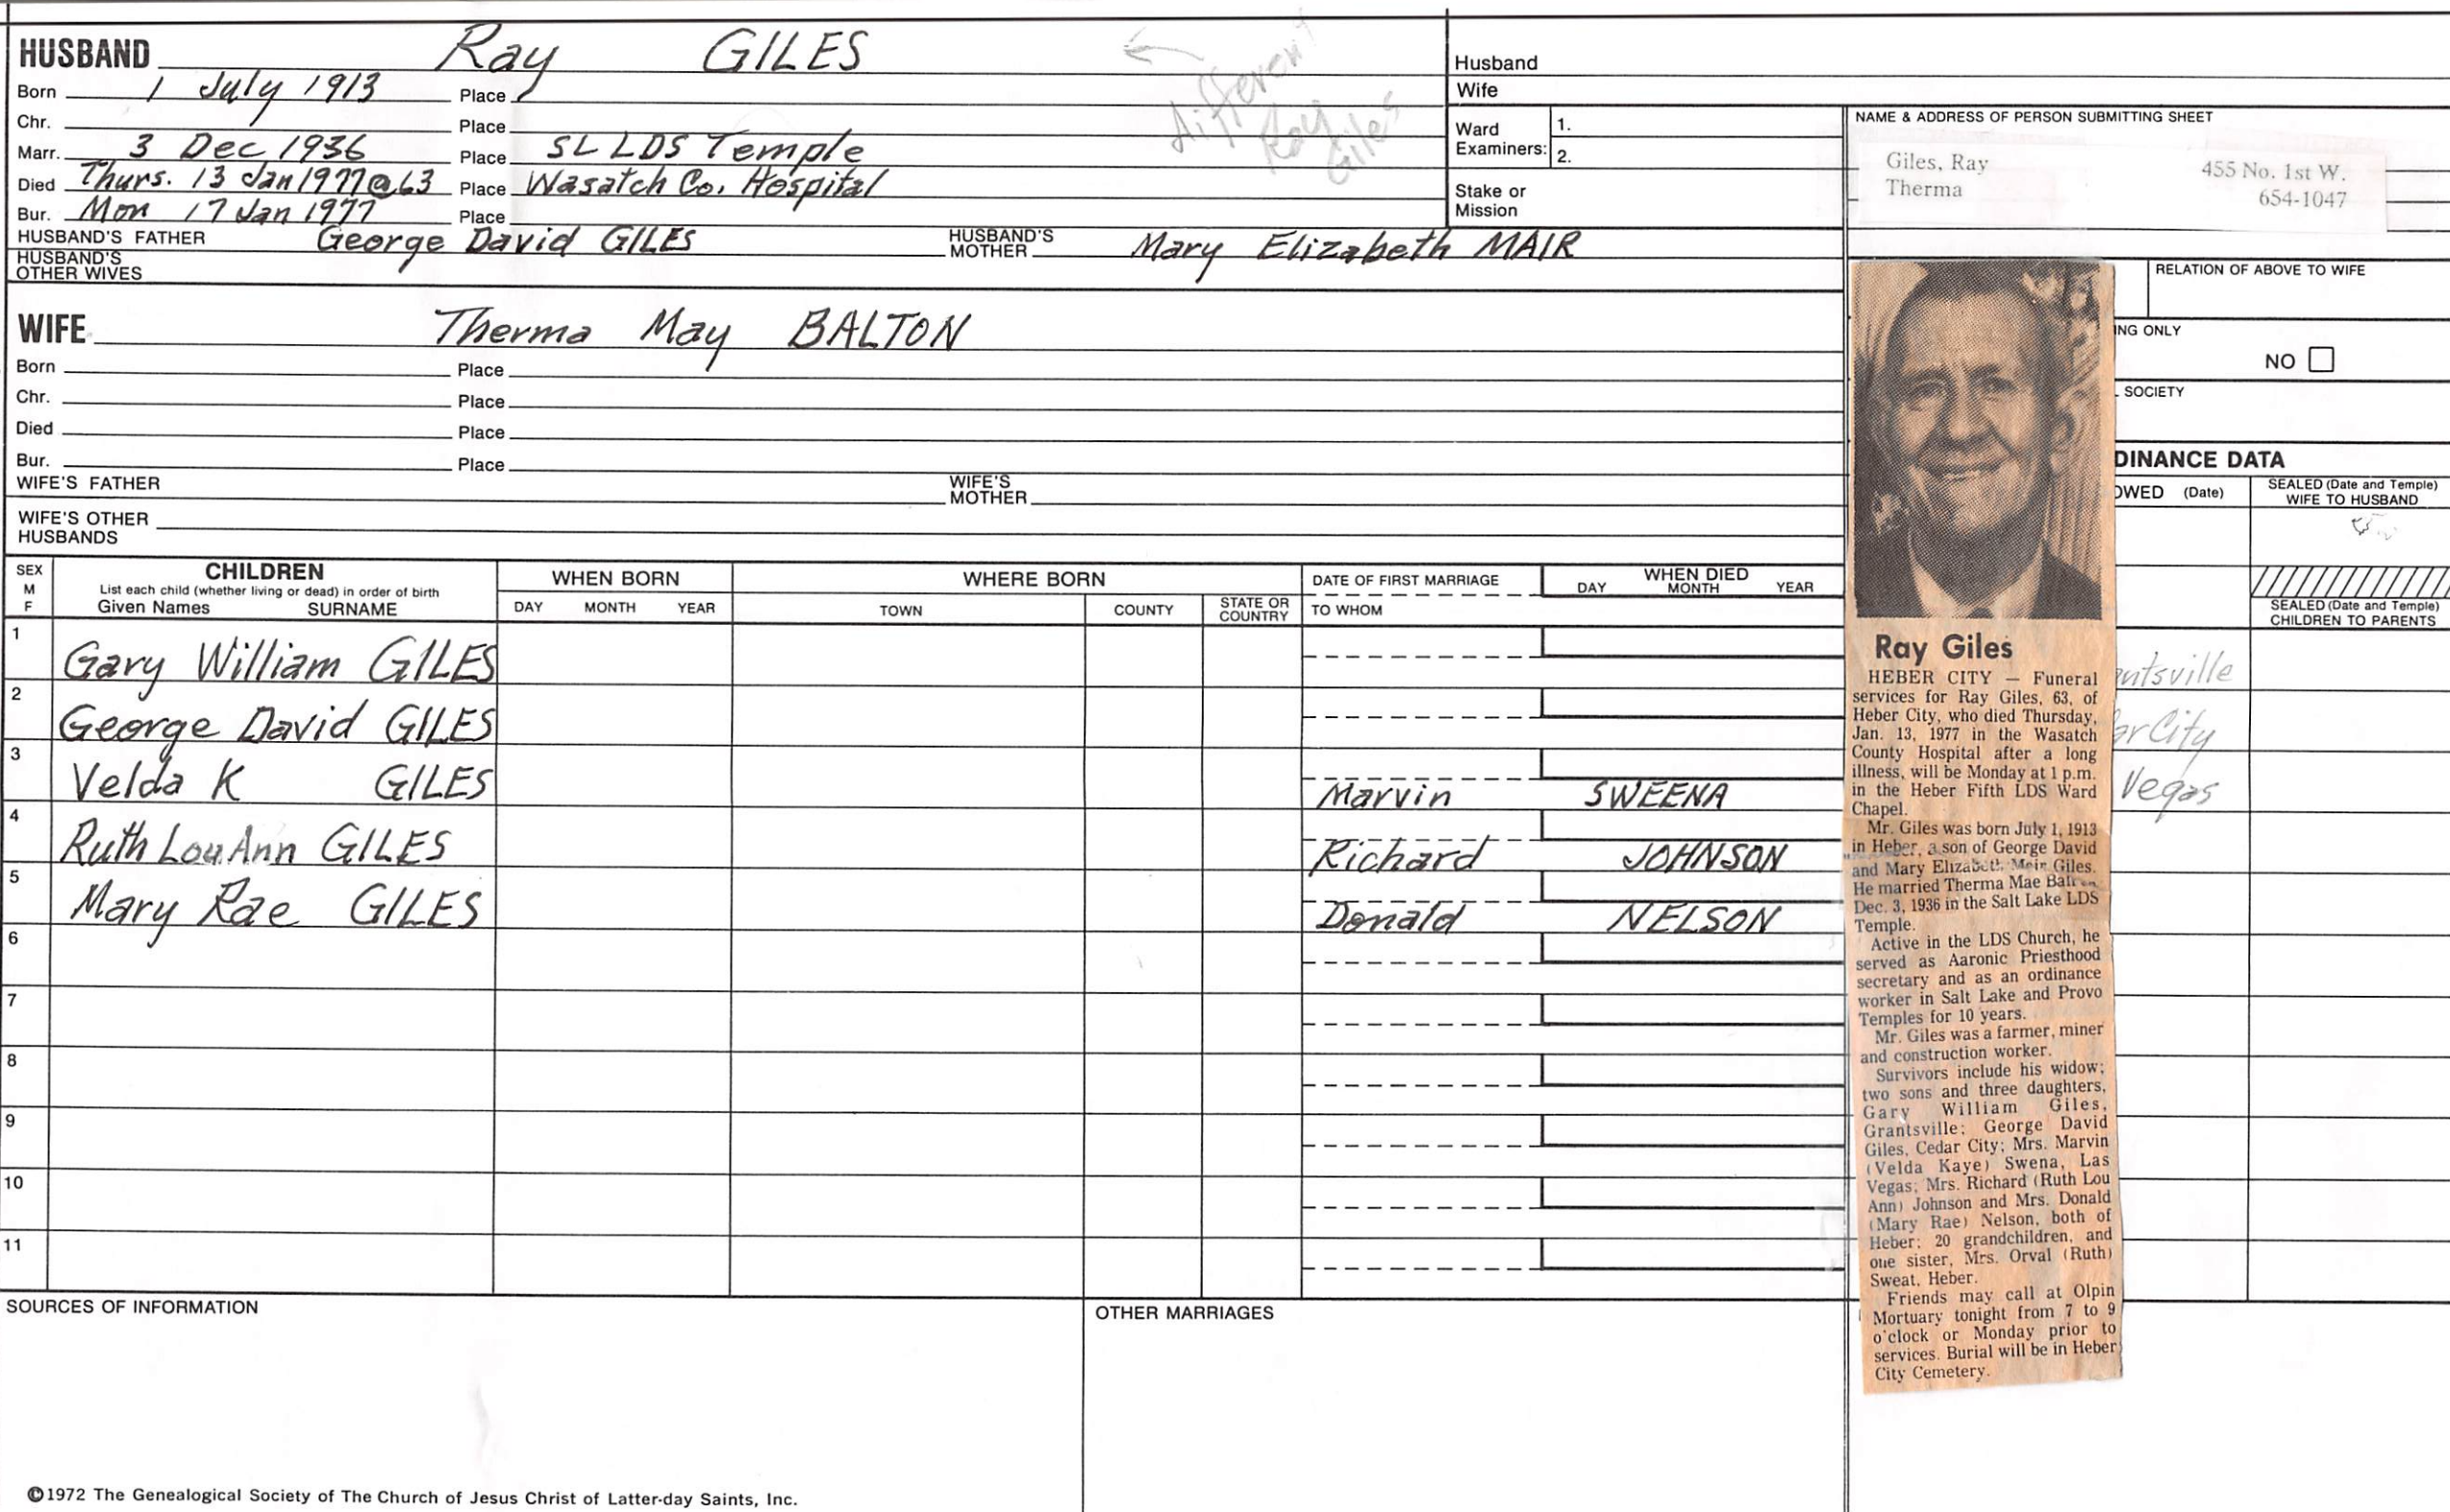 HUSBAND Ray GILES
← different Ray Giles
Born 1 July 1913 Place
Chr. Place
Marr. 3 Dec 1936 Place SL LDS Temple
Died Thurs. 13 Jan 1977 @ 63 Place Wasatch Co. Hospital
Bur. Mon 17 Jan 1977 Place
HUSBAND'S FATHER George David GILES HUSBAND'S MOTHER Mary Elizabeth MAIR
HUSBAND'S OTHER WIVES
Husband
Wife
Ward Examiners: 1.
2.
Stake or Mission
NAME & ADDRESS OF PERSON SUBMITTING SHEET
Giles, Ray 455 No. 1st W.
Therma 654-1047
RELATION OF ABOVE TO WIFE
NG ONLY
NO
SOCIETY
DINANCE DATA
OWED (Date)
SEALED (Date and Temple)
WIFE TO HUSBAND
SEALED (Date and Temple)
CHILDREN TO PARENTS
WIFE Therma May BALTON
Born Place
Chr. Place
Died Place
Bur. Place
WIFE'S FATHER WIFE'S MOTHER
WIFE'S OTHER HUSBANDS
SEX M F
CHILDREN
List each child (whether living or dead) in order of birth
Given Names SURNAME
WHEN BORN
DAY MONTH YEAR
WHERE BORN
TOWN COUNTY STATE OR COUNTRY
DATE OF FIRST MARRIAGE
TO WHOM
WHEN DIED
DAY MONTH YEAR
1 Gary William GILES ntsville
2 George David GILES ar City
3 Velda K GILES Marvin SWEENA Vegas
4 Ruth Lou Ann GILES Richard JOHNSON
5 Mary Rae GILES Donald NELSON
6
7
8
9
10
11
SOURCES OF INFORMATION
OTHER MARRIAGES
©1972 The Genealogical Society of The Church of Jesus Christ of Latter-day Saints, Inc.
Ray Giles
HEBER CITY — Funeral
services for Ray Giles, 63, of
Heber City, who died Thursday,
Jan. 13, 1977 in the Wasatch
County Hospital after a long
illness, will be Monday at 1 p.m.
in the Heber Fifth LDS Ward
Chapel.
Mr. Giles was born July 1, 1913
in Heber, a son of George David
and Mary Elizabeth Giles.
He married Therma Mae
Dec. 3, 1936 in the Salt Lake LDS
Temple.
Active in the LDS Church, he
served as Aaronic Priesthood
secretary and as an ordinance
worker in Salt Lake and Provo
Temples for 10 years.
Mr. Giles was a farmer, miner
and construction worker.
Survivors include his widow;
two sons and three daughters,
Gary William Giles,
Grantsville; George David
Giles, Cedar City; Mrs. Marvin
(Velda Kaye) Swena, Las
Vegas; Mrs. Richard (Ruth Lou
Ann) Johnson and Mrs. Donald
(Mary Rae) Nelson, both of
Heber; 20 grandchildren, and
one sister, Mrs. Orval (Ruth)
Sweat, Heber.
Friends may call at Olpin
Mortuary tonight from 7 to 9
o'clock or Monday prior to
services. Burial will be in Heber
City Cemetery.